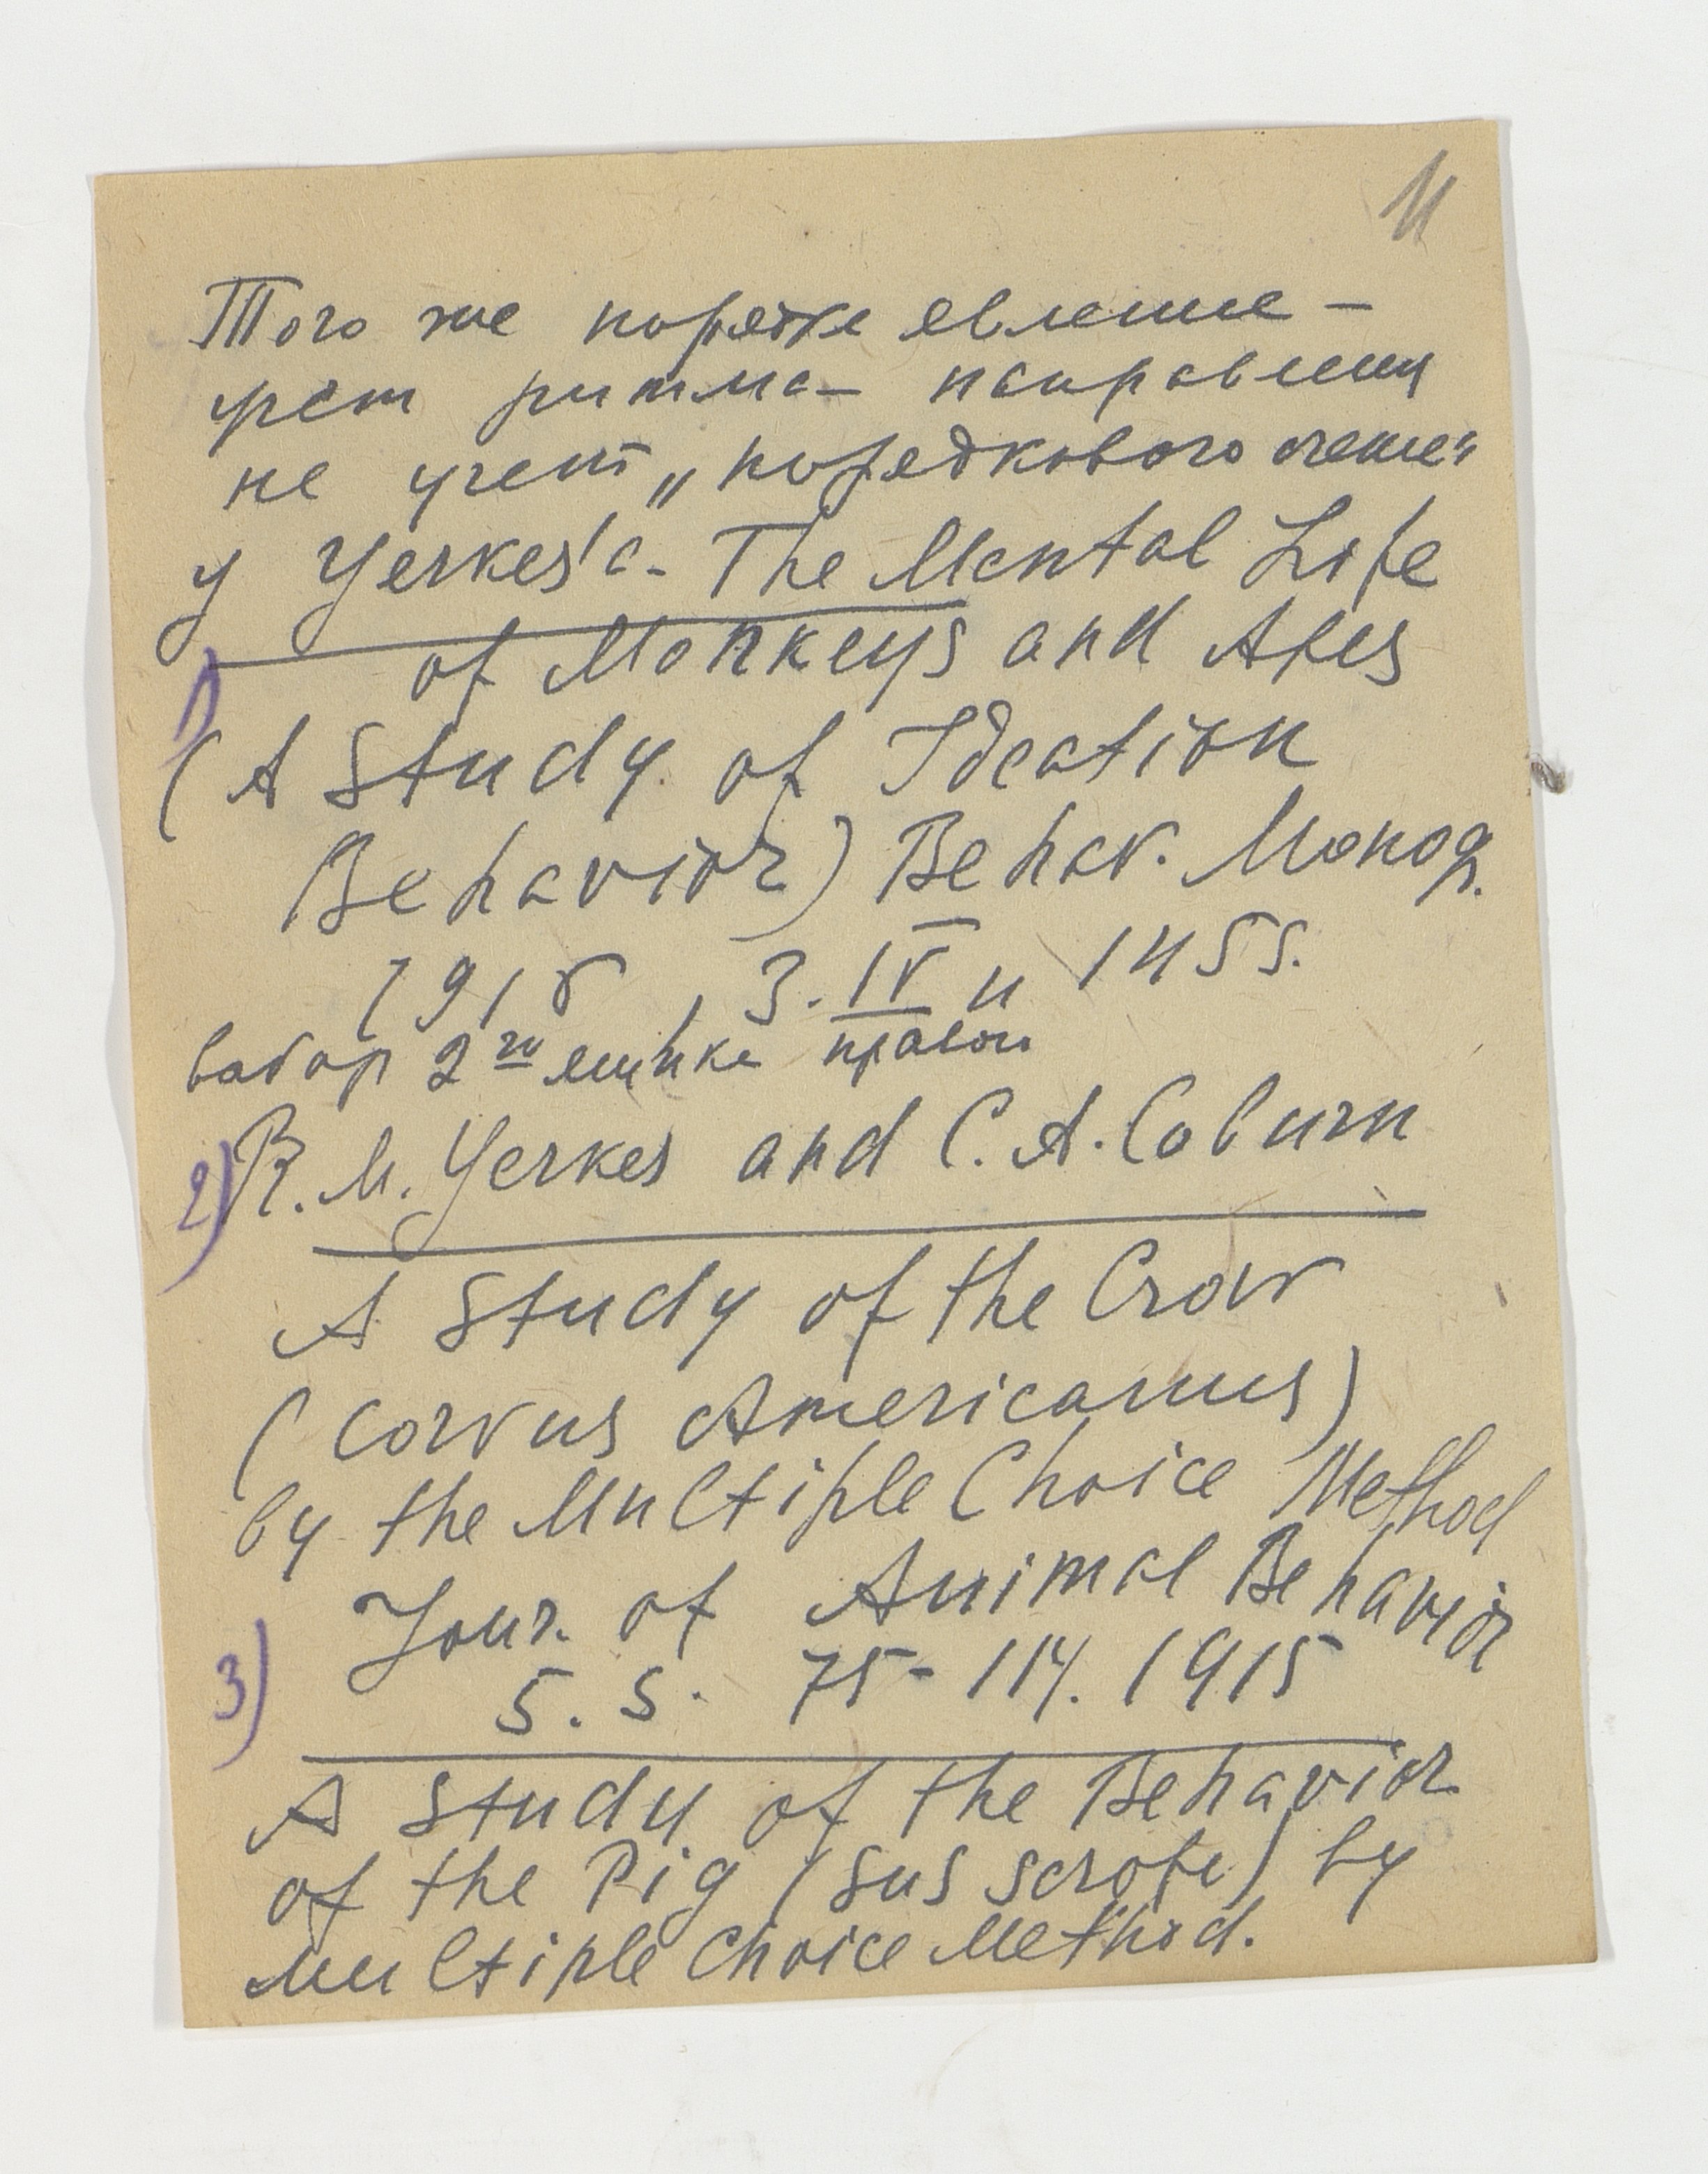 11
Того же порядка явление –
учет ритма – направления
не учет „порядкового
у Yerkes'a - The Mental Life
of Monkeys and Apes
1)
(A Study of Ideation
Behavior) Behav. Monog.
1916, 3. IV и 145 S.
2го ящика
2) R. M. Yerkes and C. A. Coburn
A Study of the Crow
(Corvus Americanus)
by the Multiple Choice Method
Jour. of Animal Behavior
5. S. 75-114. 1915
3)
A Study of the Behavior
of the Pig (Sus Scrofa) by
Multiple Choice Method.